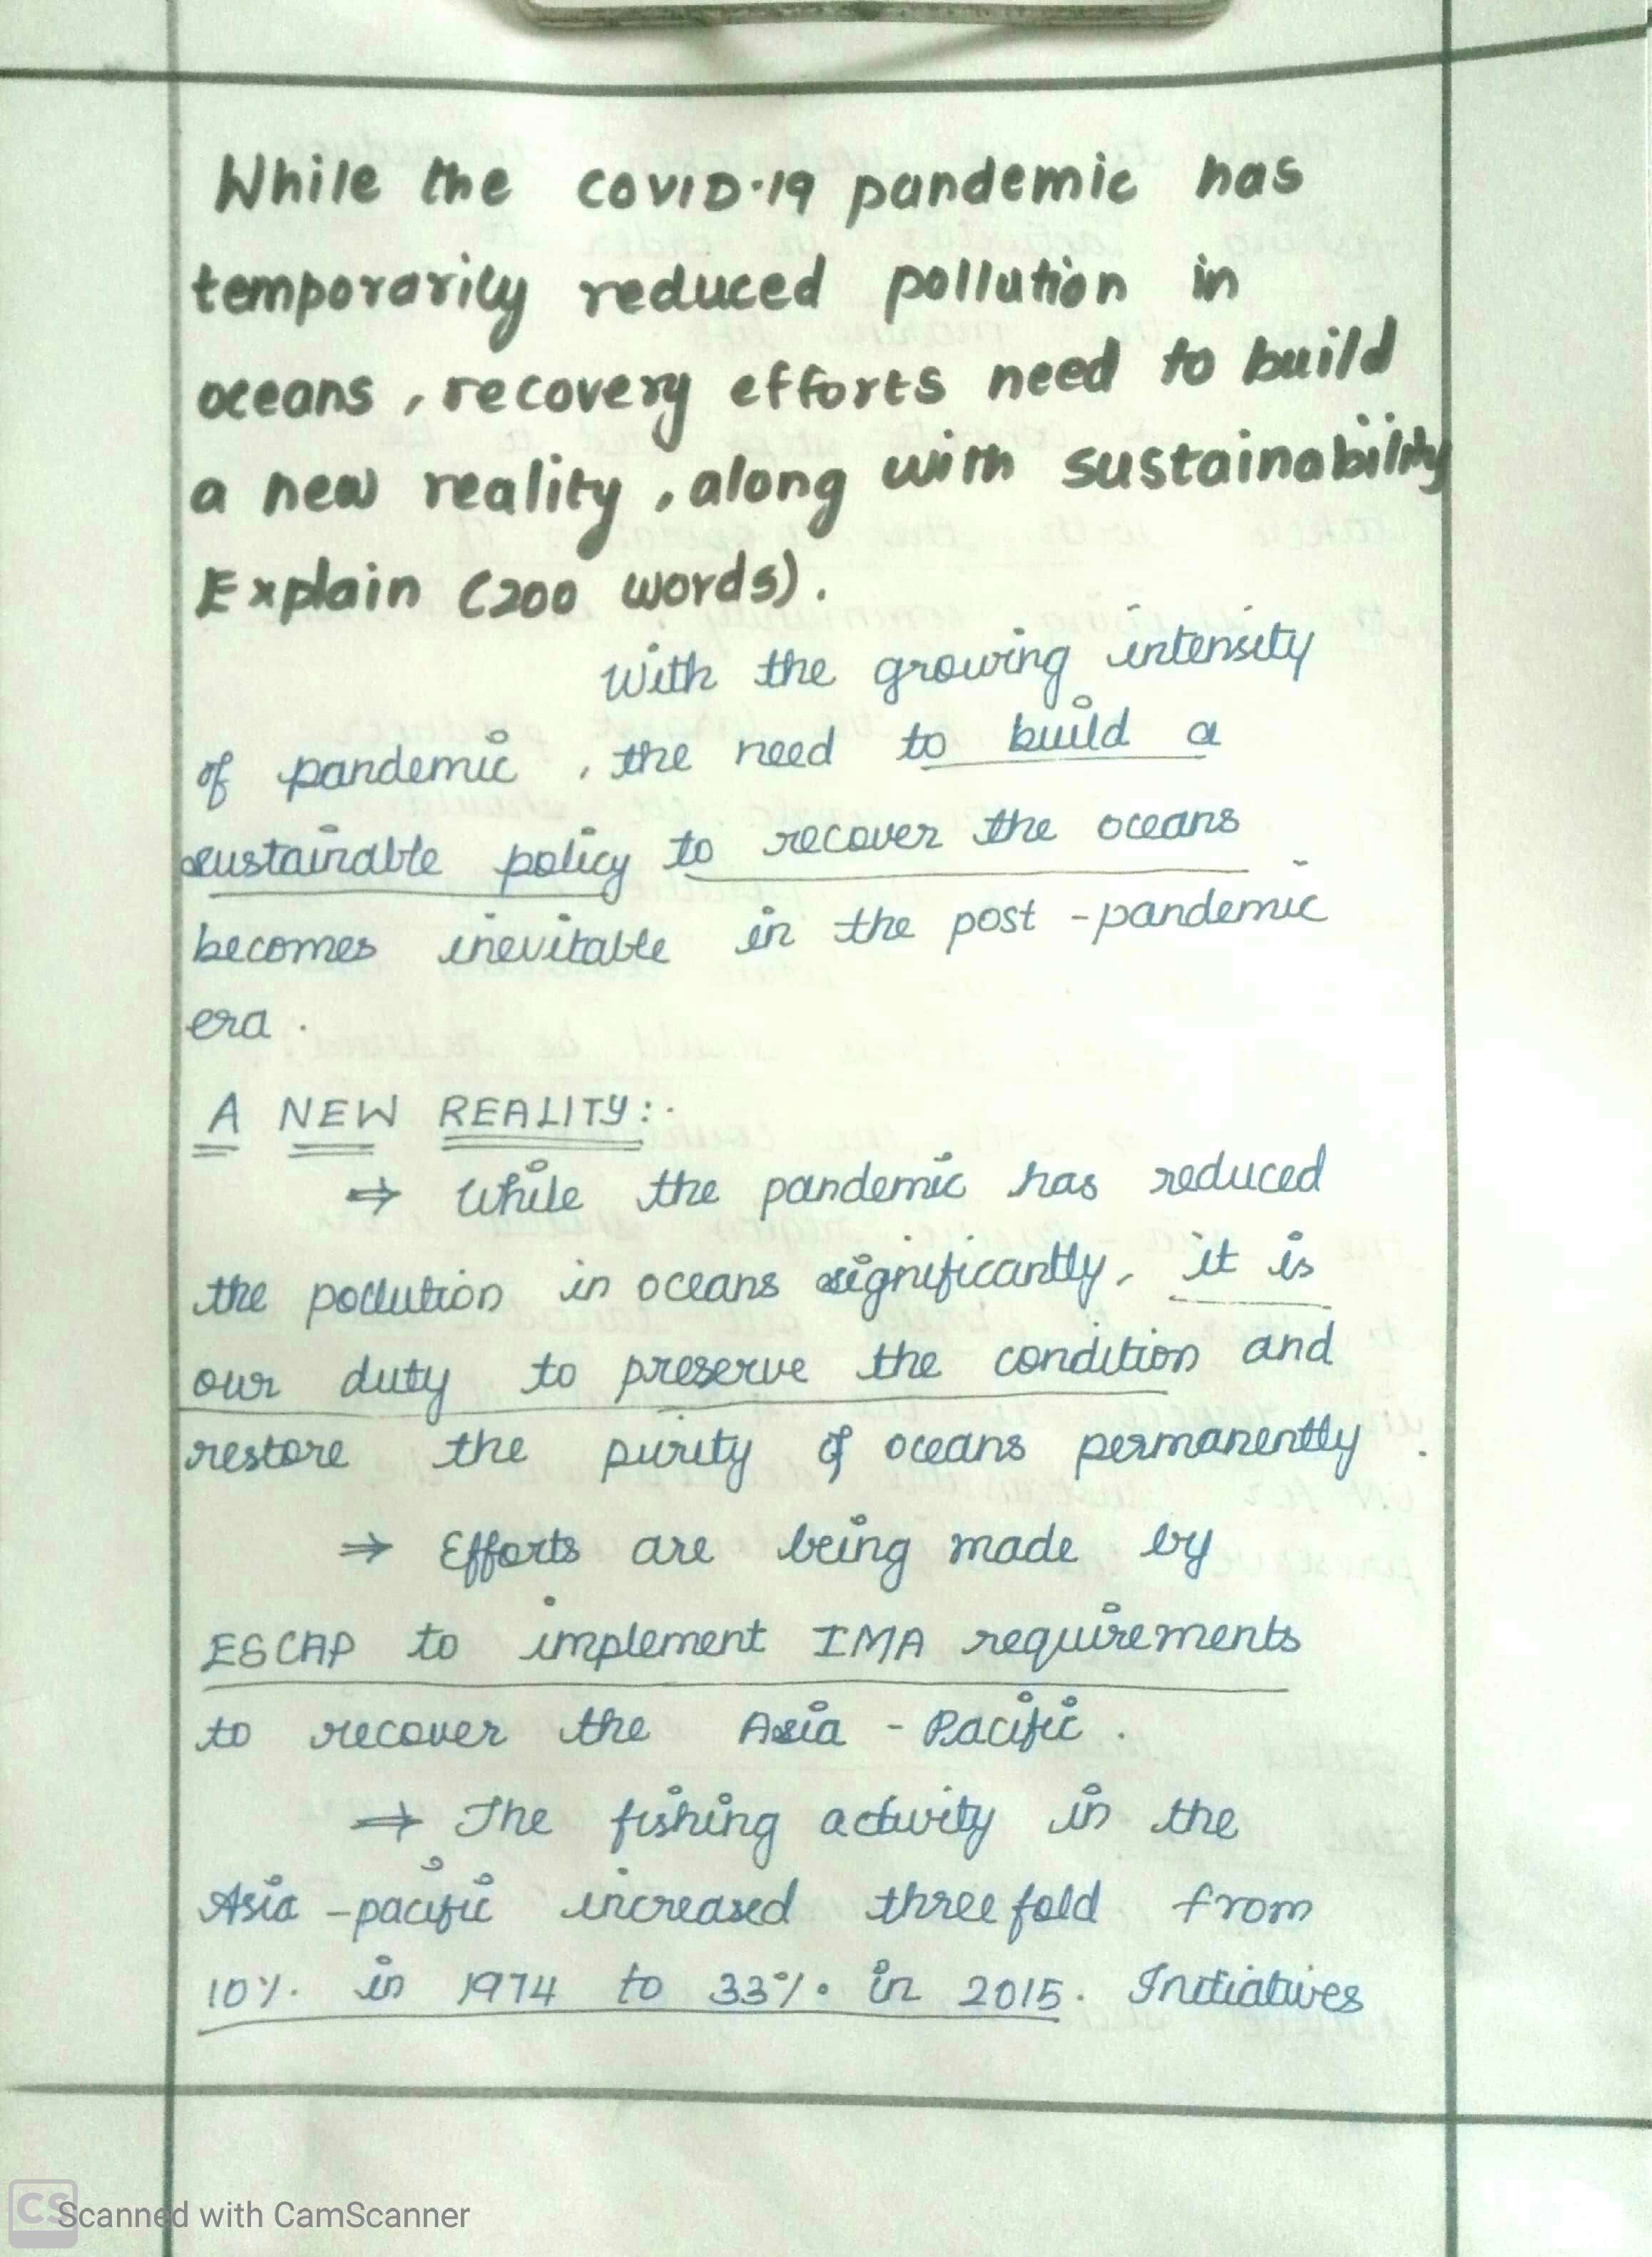 While the COVID-19 pandemic has
temporarily reduced pollution in
oceans, recovery efforts need to build
a new reality, along with sustainability
Explain (200 words).
With the growing intensity
of pandemic, the need to build a
sustainable policy to recover the oceans
becomes inevitable in the post-pandemic
era.
A NEW REALITY:-
⇒ While the pandemic has reduced
the pollution in oceans significantly, it is
our duty to preserve the condition and
restore the purity of oceans permanently.
⇒ Efforts are being made by
ESCAP to implement IMA requirements
to recover the Asia-Pacific.
⇒ The fishing activity in the
Asia-pacific increased three fold from
10% in 1974 to 33% in 2015. Initiatives
CS Scanned with CamScanner